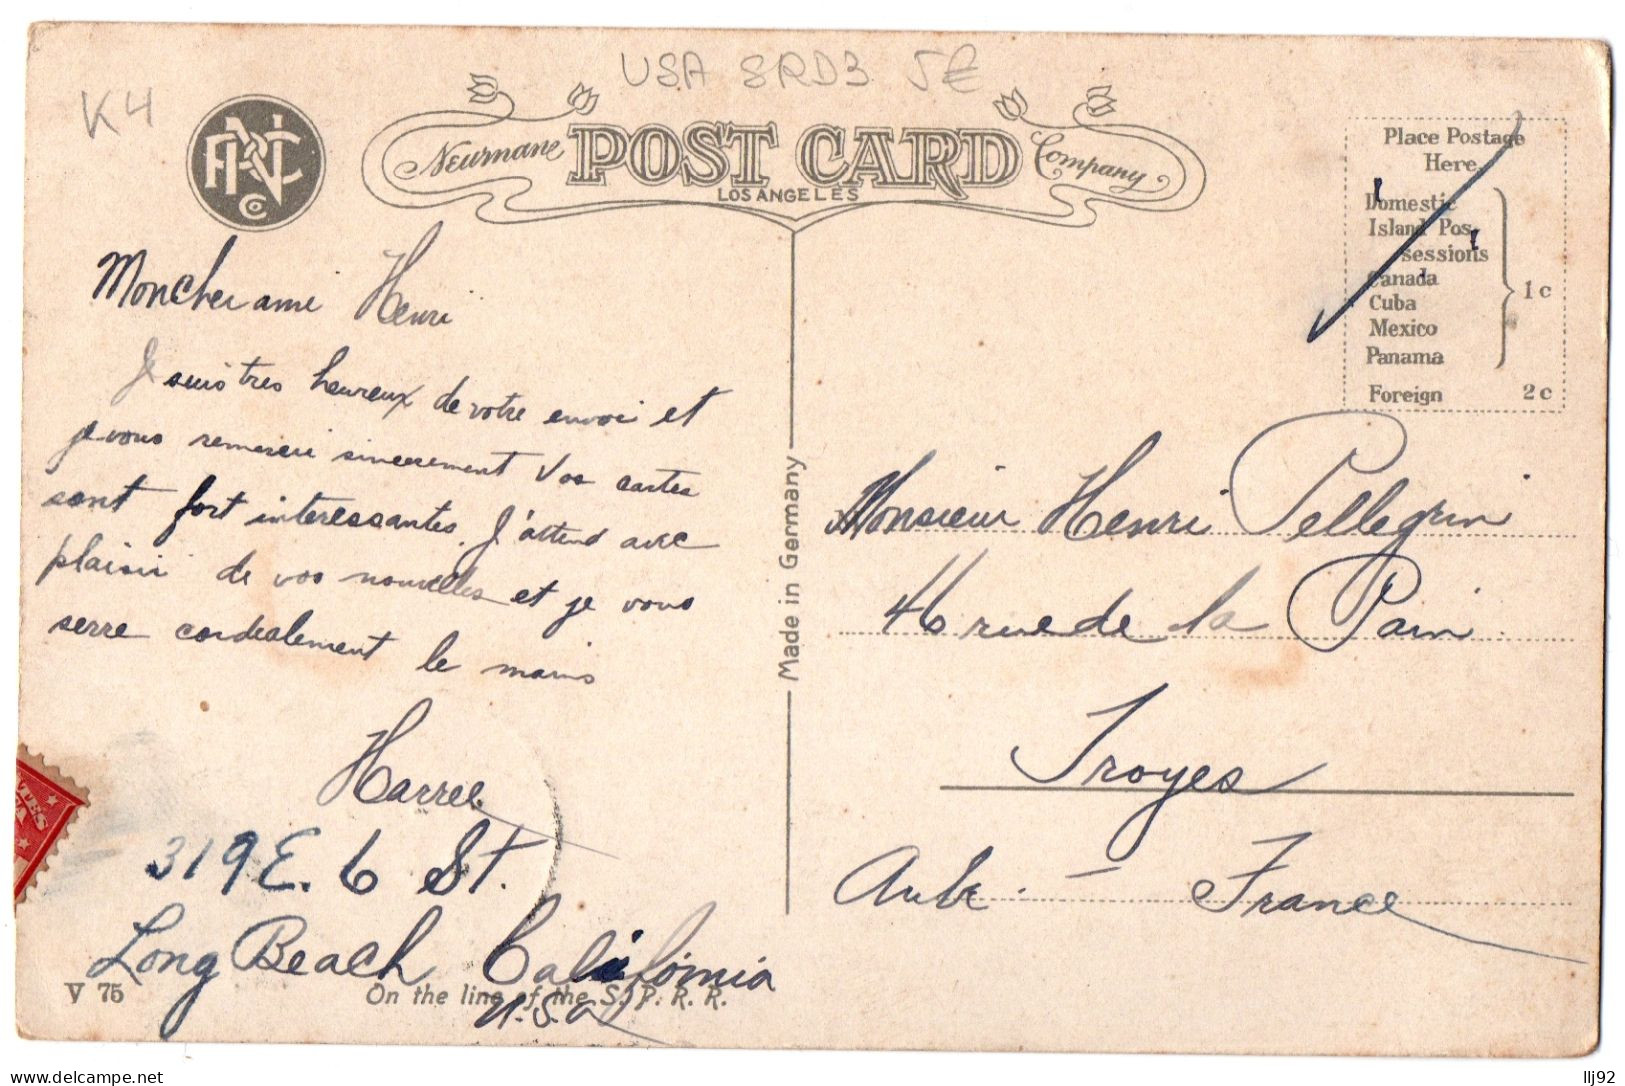 USA 8RD3 5€
K4
PNC Co
Neumane POST CARD Company
LOS ANGELES
Place Postage
Here
Domestic
Island Pos
sessions
Canada
Cuba
Mexico
Panama
1c
Foreign 2c
Mon Cher ami Henri
Je suis tres heureux de votre envoi et
je vous remercie sincerement Vos cartes
sont fort interessantes. J'attend avec
plaisir de vos nouvelles et je vous
serre cordealement le mains
Harree
319 E. 6 St.
Long Beach California
U.S.A
V 75 On the line of the S. P. R. R.
Made in Germany
Monsieur Henri Pellegrin
46 rue de la Pain
Troyes
Aube. — France
llj92